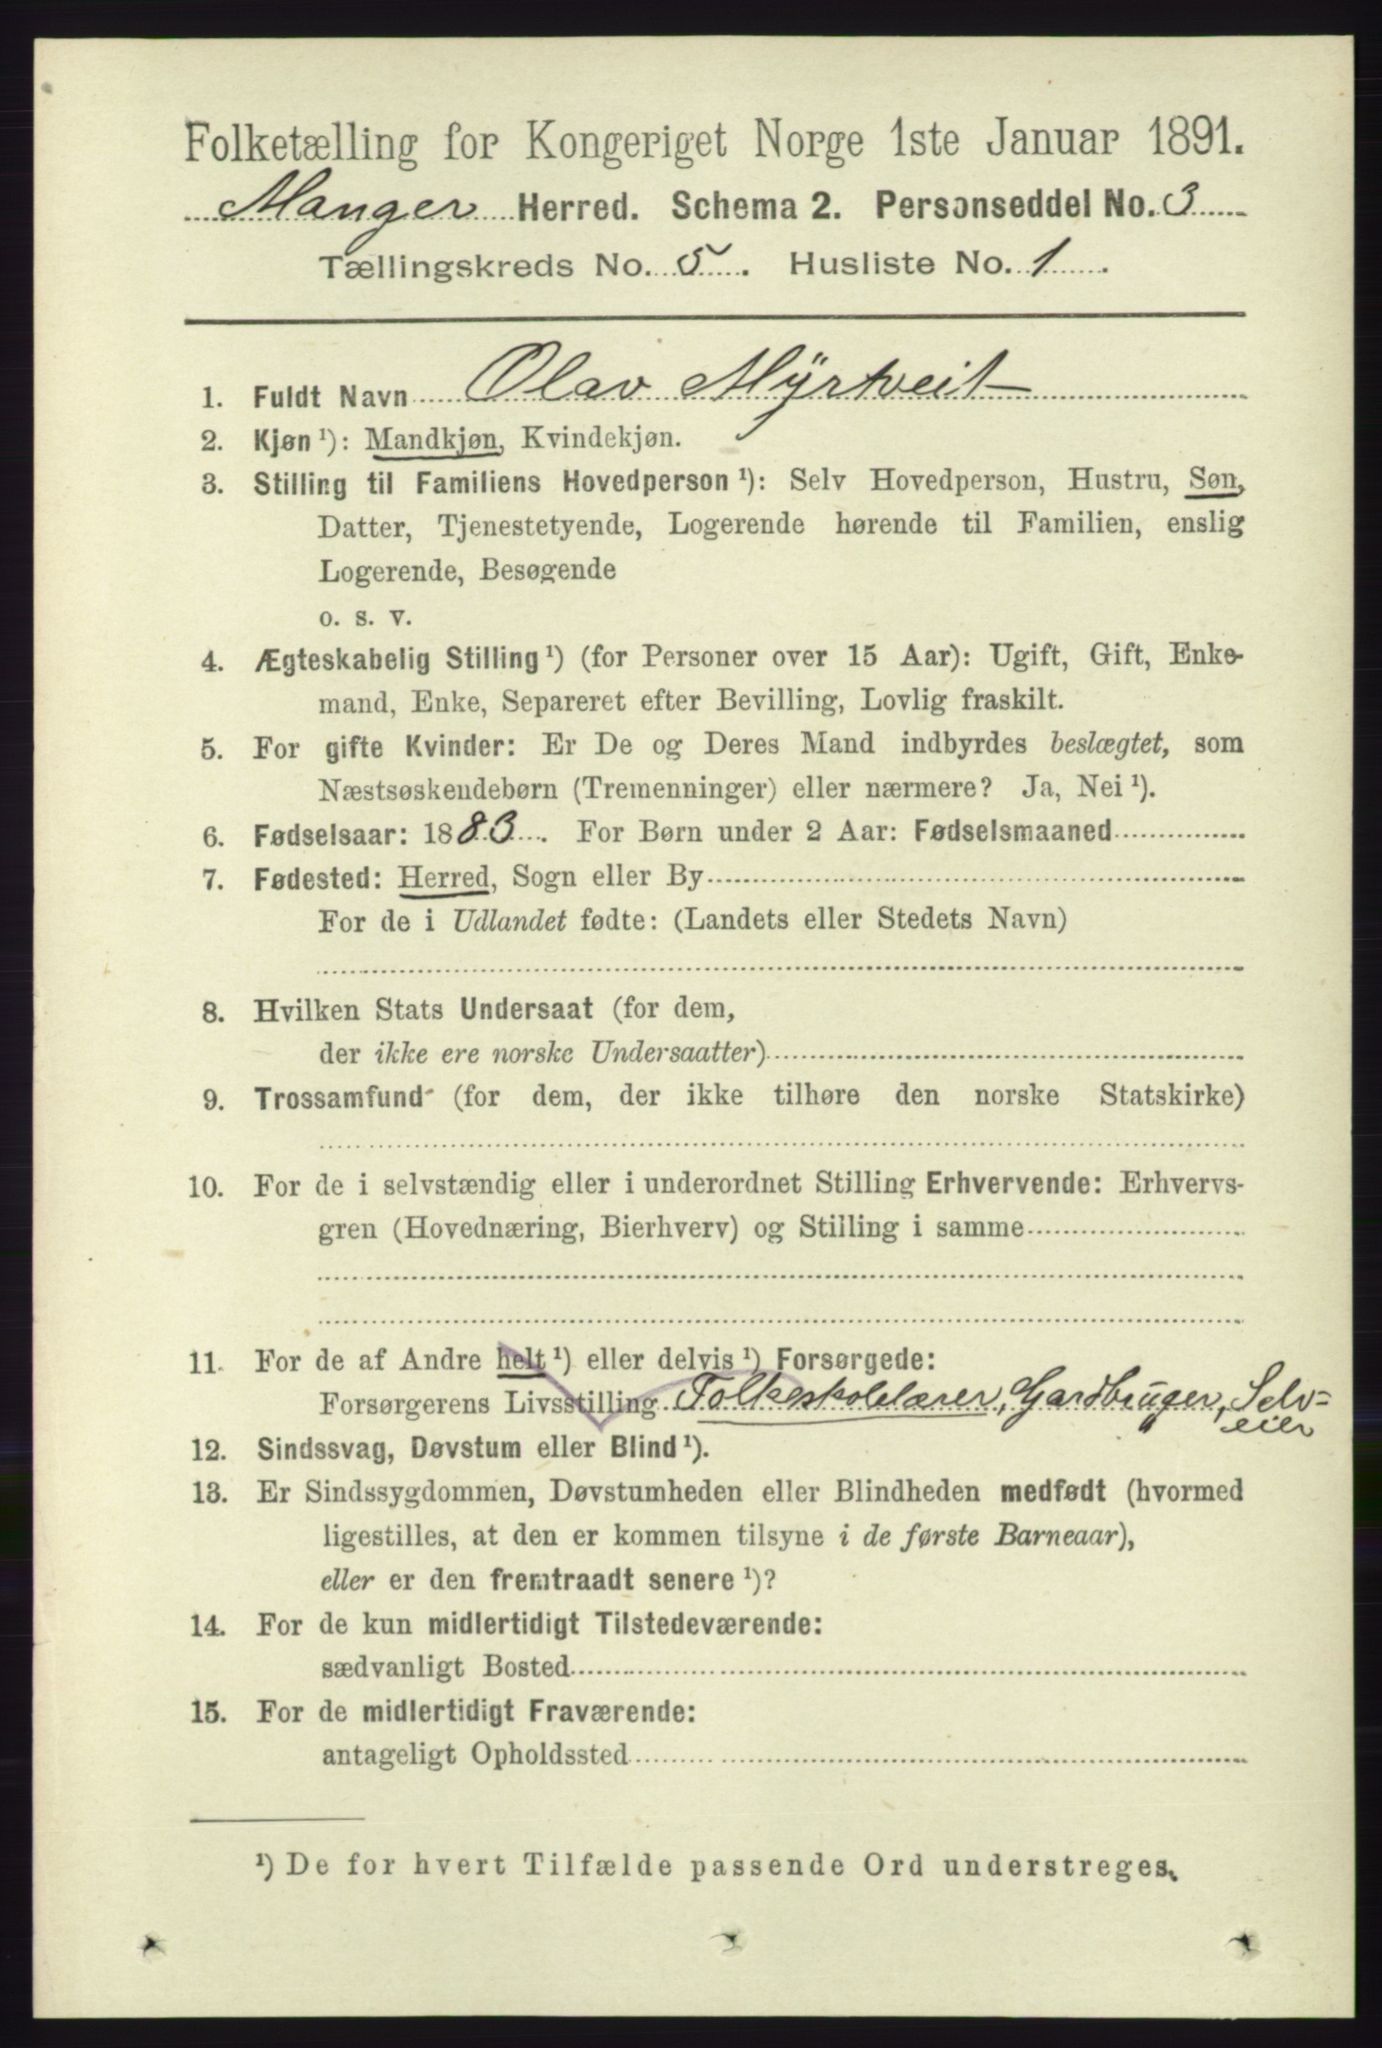 Folketælling for Kongeriget Norge 1ste Januar 1891.
Manger Herred. Schema 2. Personseddel No. 3
Tællingskreds No. 5. Husliste No. 1.
1. Fuldt Navn Olav Myrtveit
2. Kjøn ¹): Mandkjøn, Kvindekjøn.
3. Stilling til Familiens Hovedperson ¹): Selv Hovedperson, Hustru, Søn,
Datter, Tjenestetyende, Logerende hørende til Familien, enslig
Logerende, Besøgende
o. s. v.
4. Ægteskabelig Stilling ¹) (for Personer over 15 Aar): Ugift, Gift, Enke-
mand, Enke, Separeret efter Bevilling, Lovlig fraskilt.
5. For gifte Kvinder: Er De og Deres Mand indbyrdes beslægtet, som
Næstsøskendebørn (Tremenninger) eller nærmere? Ja, Nei ¹).
6. Fødselsaar: 1883. For Børn under 2 Aar: Fødselsmaaned
7. Fødested: Herred, Sogn eller By
For de i Udlandet fødte: (Landets eller Stedets Navn)
8. Hvilken Stats Undersaat (for dem,
der ikke ere norske Undersaatter)
9. Trossamfund (for dem, der ikke tilhøre den norske Statskirke)
10. For de i selvstændig eller i underordnet Stilling Erhvervende: Erhvervs-
gren (Hovednæring, Bierhverv) og Stilling i samme
11. For de af Andre helt ¹) eller delvis ¹) Forsørgede:
Forsørgerens Livsstilling Folkeskolelærer, Gardbruger, Selv=
eier
12. Sindssvag, Døvstum eller Blind ¹).
13. Er Sindssygdommen, Døvstumheden eller Blindheden medfødt (hvormed
ligestilles, at den er kommen tilsyne i de første Barneaar),
eller er den fremtraadt senere ¹)?
14. For de kun midlertidigt Tilstedeværende:
sædvanligt Bosted
15. For de midlertidigt Fraværende:
antageligt Opholdssted
¹) De for hvert Tilfælde passende Ord understreges.